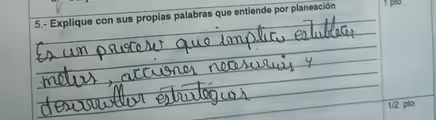 1 pto
5.- Explique con sus propias palabras que entiende por planeación
Es un proceso que implica establecer
metas, acciones necesarias y
desarrollar estrategias
1/2 pto